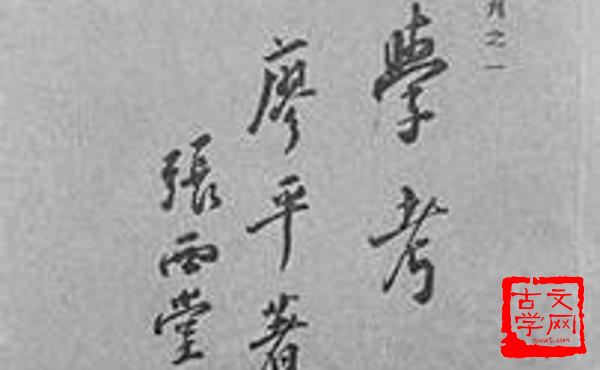 之一
學考
廖平著
張西堂
古文
学网